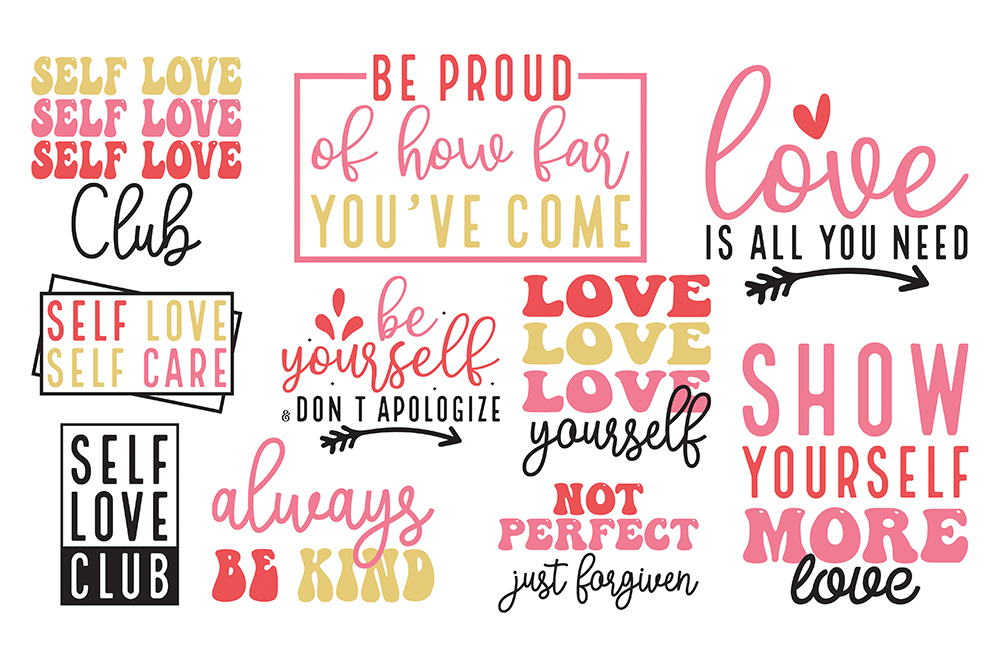 SELF LOVE
SELF LOVE
SELF LOVE
Club
BE PROUD
of how far
YOU'VE COME
love
IS ALL YOU NEED
SELF LOVE
SELF CARE
be
yourself
& DON T APOLOGIZE
LOVE
LOVE
LOVE
yourself
SHOW
YOURSELF
MORE
love
SELF
LOVE
CLUB
always
BE KIND
NOT
PERFECT
just forgiven